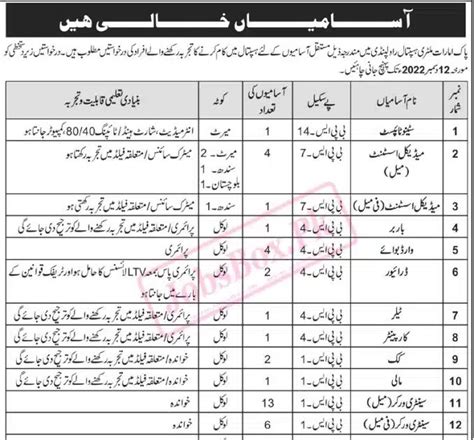 آسامیاں خالی ہیں
پاک امارات ملٹری ہسپتال راولپنڈی میں مندرجہ ذیل مستقل آسامیوں کے لئے ہسپتال میں کام کرنے کا تجربہ رکھنے والے افراد کی درخواستیں مطلوب ہیں۔ درخواستیں زیر دستخطی کو
مورخہ 12 دسمبر 2022 تک پہنچ جانی چاہئیں۔
نمبر شمار | نام آسامیاں | پے سکیل | آسامیوں کی تعداد | کوٹہ | بنیادی تعلیمی قابلیت و تجربہ
1 | سٹینو ٹائپسٹ | بی پی ایس۔14 | 1 | میرٹ | انٹرمیڈیٹ، شارٹ ہینڈ/ٹائپنگ 80/40 کمپیوٹر جانتا ہو
2 | میڈیکل اسسٹنٹ (میل) | بی پی ایس۔7 | 4 | میرٹ۔2 سندھ۔1 بلوچستان۔1 | میٹرک سائنس/متعلقہ فیلڈ میں تجربہ رکھتا ہو
3 | میڈیکل اسسٹنٹ (فی میل) | بی پی ایس۔7 | 1 | سندھ۔1 | میٹرک سائنس/متعلقہ فیلڈ میں تجربہ رکھتی ہو
4 | باربر | بی پی ایس۔2 | 1 | لوکل | پرائمری/متعلقہ فیلڈ میں تجربہ رکھنے والے کو ترجیح دی جائے گی
5 | وارڈ بوائے | بی پی ایس۔2 | 4 | لوکل | پرائمری
6 | ڈرائیور | بی پی ایس۔4 | 2 | لوکل | پرائمری پاس بمعہ LTV لائسنس کا حامل ہو اور ٹریفک قوانین کے بارے میں جانتا ہو
7 | ٹیلر | بی پی ایس۔4 | 1 | لوکل | پرائمری/متعلقہ فیلڈ میں تجربہ رکھنے والے کو ترجیح دی جائے گی
8 | کارپینٹر | بی پی ایس۔4 | 1 | لوکل | پرائمری/متعلقہ فیلڈ میں تجربہ رکھنے والے کو ترجیح دی جائے گی
9 | کک | بی پی ایس۔1 | 2 | لوکل | خواندہ/متعلقہ فیلڈ میں تجربہ رکھنے والے کو ترجیح دی جائے گی
10 | مالی | بی پی ایس۔1 | 1 | لوکل | خواندہ/متعلقہ فیلڈ میں تجربہ رکھنے والے کو ترجیح دی جائے گی
11 | سینٹری ورکر (میل) | بی پی ایس۔1 | 13 | لوکل | خواندہ
12 | سینٹری ورکر (فی میل) | بی پی ایس۔1 | 6 | لوکل | خواندہ
JobsBox.PK